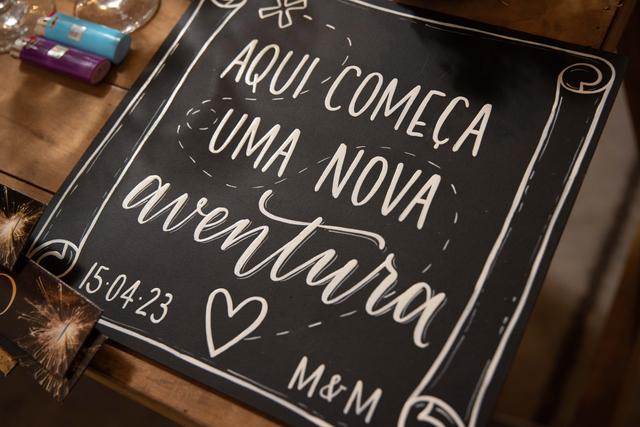 AQUI COMEÇA
UMA NOVA
aventura
15·04·23
M&M